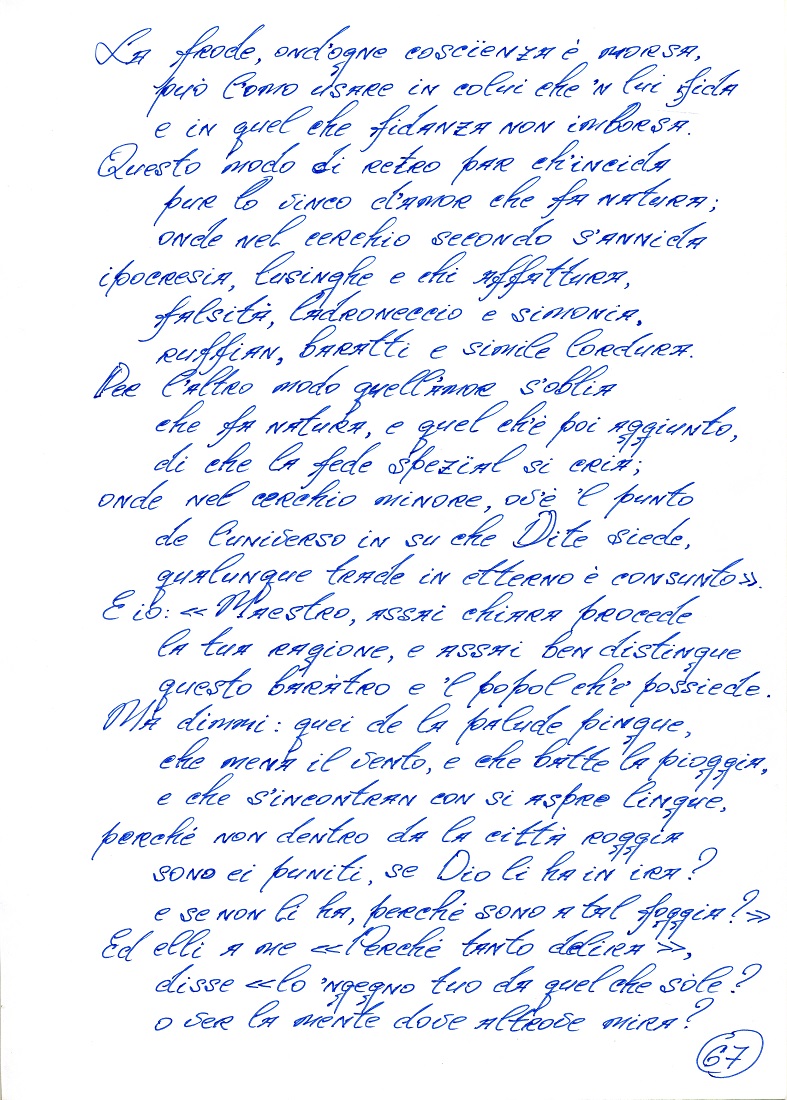 La frode, ond'ogne coscïenza è morsa,
può l'omo usare in colui che 'n lui fida
e in quel che fidanza non imborsa.
Questo modo di retro par ch'incida
pur lo vinco d'amor che fa natura;
onde nel cerchio secondo s'annida
ipocresia, lusinghe e chi affattura,
falsità, ladroneccio e simonia,
ruffian, baratti e simile lordura.
Per l'altro modo quell'amor s'oblia
che fa natura, e quel ch'è poi aggiunto,
di che la fede spezïal si cria;
onde nel cerchio minore, ov'è 'l punto
de l'universo in su che Dite siede,
qualunque trade in etterno è consunto».
E io: «Maestro, assai chiara procede
la tua ragione, e assai ben distingue
questo baràtro e 'l popol ch'e' possiede.
Ma dimmi: quei de la palude pingue,
che mena il vento, e che batte la pioggia,
e che s'incontran con sì aspre lingue,
perché non dentro da la città roggia
sono ei puniti, se Dio li ha in ira?
e se non li ha, perché sono a tal foggia?»
Ed elli a me «Perché tanto delira»,
disse «lo 'ngegno tuo da quel che sòle?
o ver la mente dove altrove mira?
67